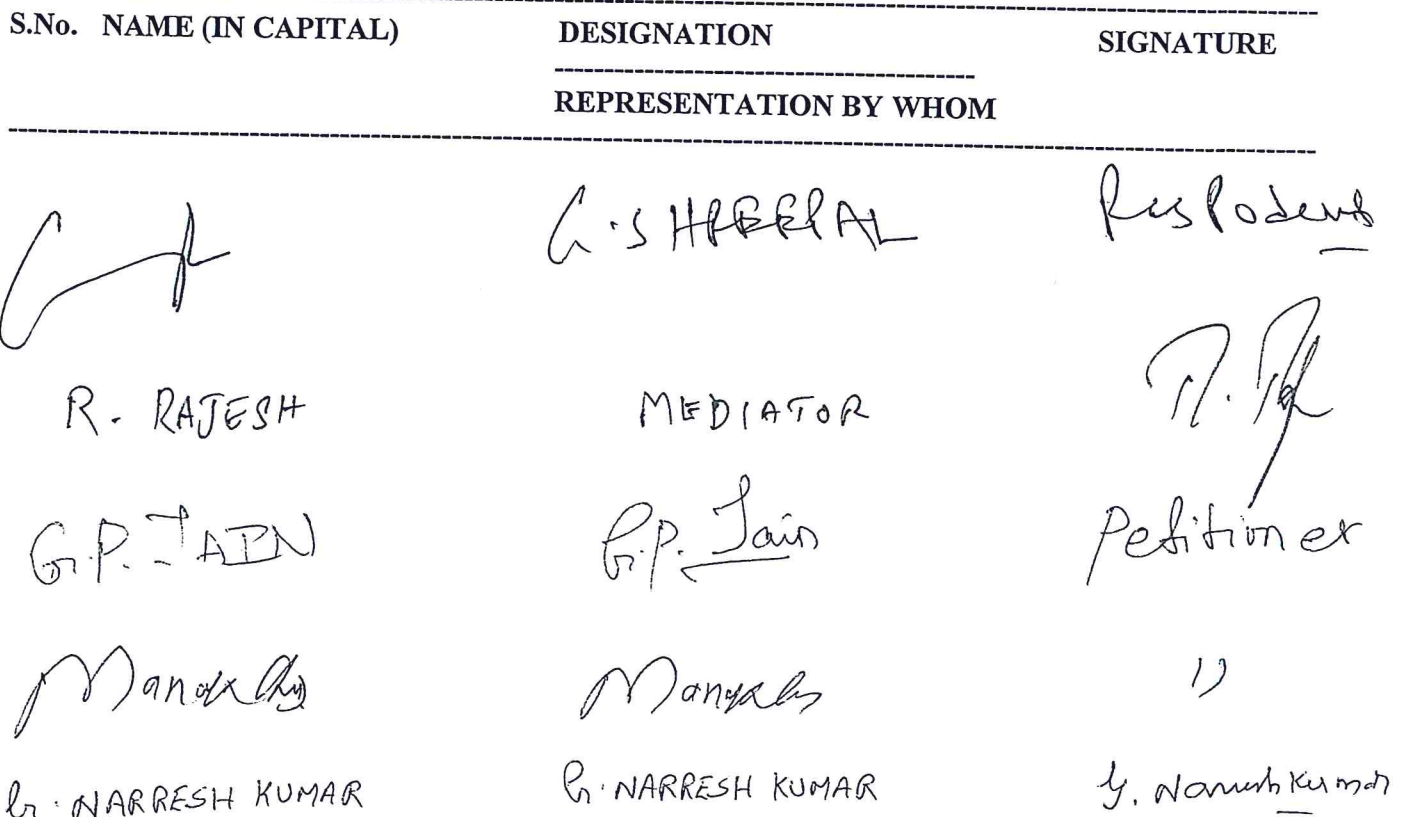 S.No. NAME (IN CAPITAL) DESIGNATION SIGNATURE
REPRESENTATION BY WHOM
G.S Respodent
R. RAJESH MEDIATOR
G.P. JAIN G.P. Jain Petitioner
"
G. NARRESH KUMAR G. NARRESH KUMAR G. Naresh Kumar